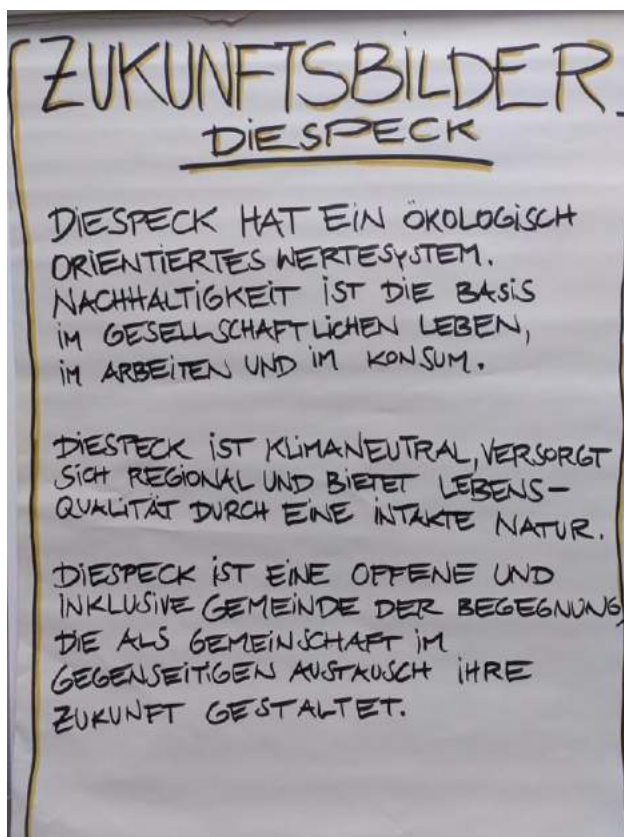 ZUKUNFTSBILDER
DIESPECK
DIESPECK HAT EIN ÖKOLOGISCH
ORIENTIERTES WERTESYSTEM.
NACHHALTIGKEIT IST DIE BASIS
IM GESELLSCHAFTLICHEN LEBEN,
IM ARBEITEN UND IM KONSUM.
DIESPECK IST KLIMANEUTRAL, VERSORGT
SICH REGIONAL UND BIETET LEBENS-
QUALITÄT DURCH EINE INTAKTE NATUR.
DIESPECK IST EINE OFFENE UND
INKLUSIVE GEMEINDE DER BEGEGNUNG,
DIE ALS GEMEINSCHAFT IM
GEGENSEITIGEN AUSTAUSCH IHRE
ZUKUNFT GESTALTET.